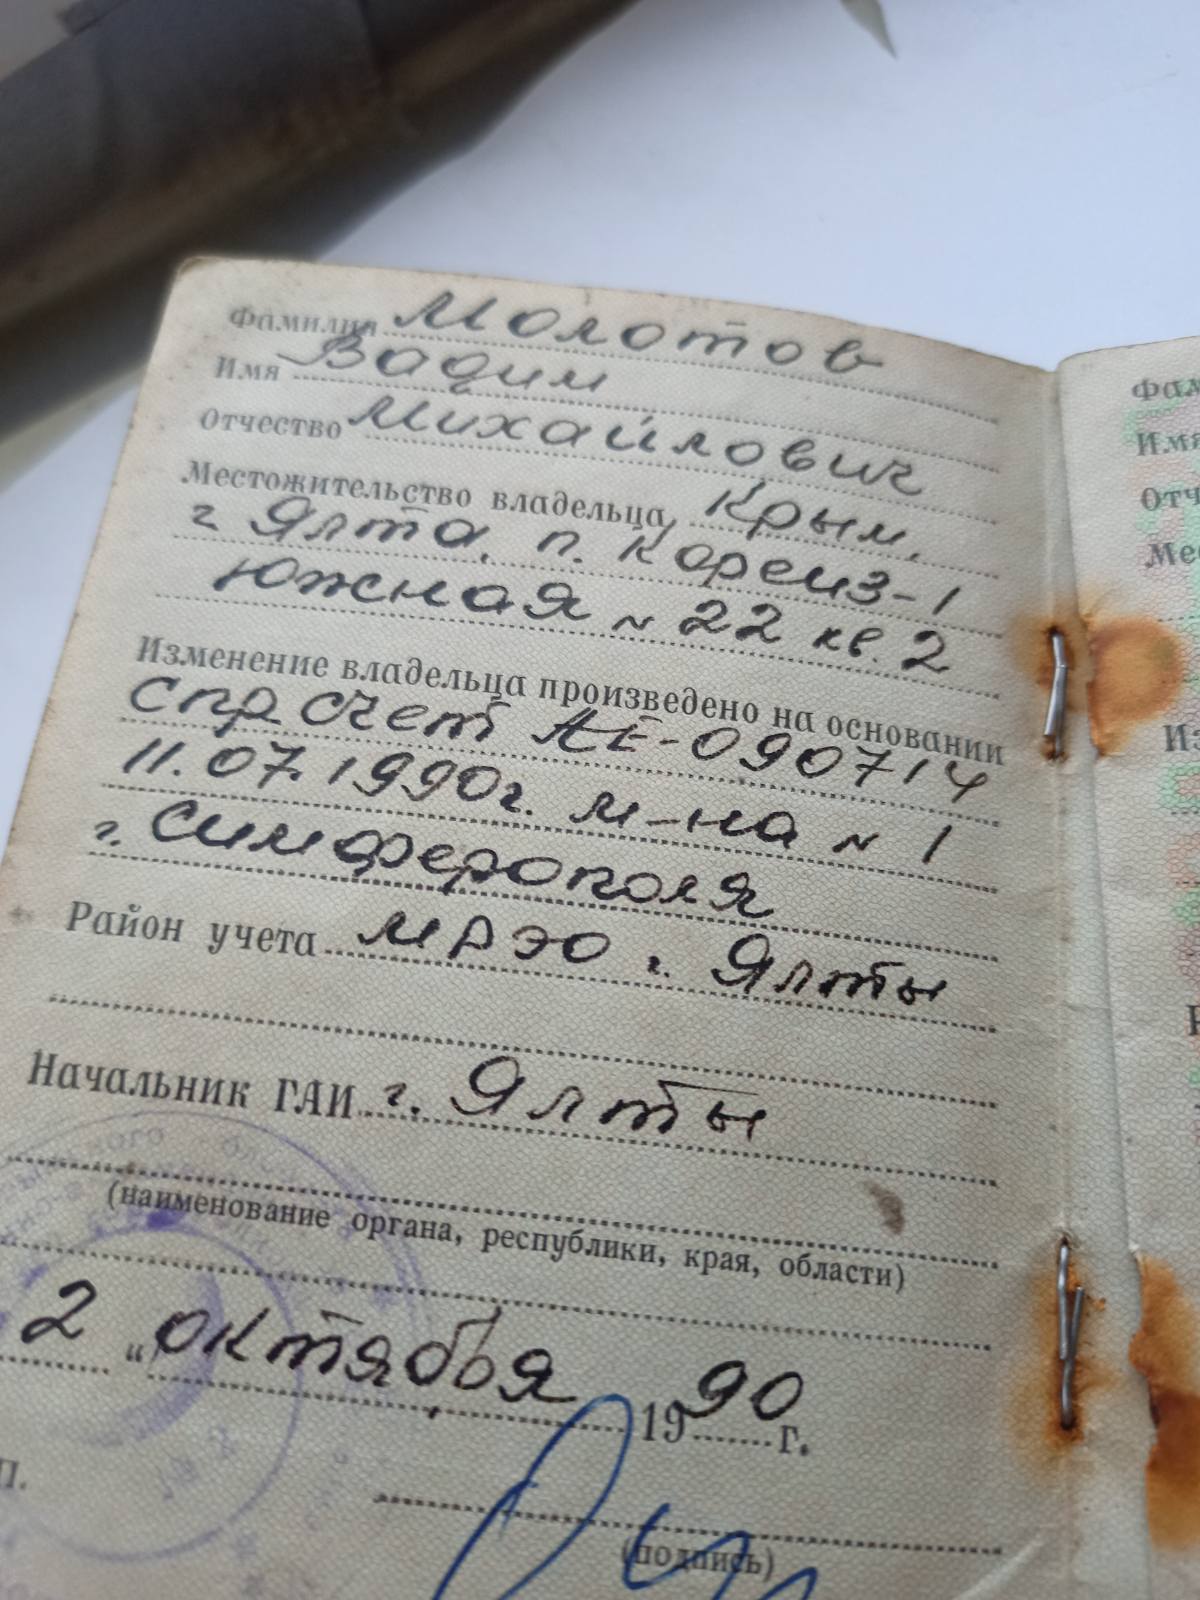 Фамилия Молотов
Имя Вадим
Отчество Михайлович
Местожительство владельца Крым,
г. Ялта, п. Кореиз-1
Южная № 22 кв. 2
Изменение владельца произведено на основании
спр счет АЕ-090714
11.07.1990г. м-на № 1
г. Симферополя
Район учета МРЭО г. Ялты
Начальник ГАИ г. Ялты
(наименование органа, республики, края, области)
2 „ октября 1990 г.
П.
(подпись)
Фам
Имя
Отч
Ме
Из
Р